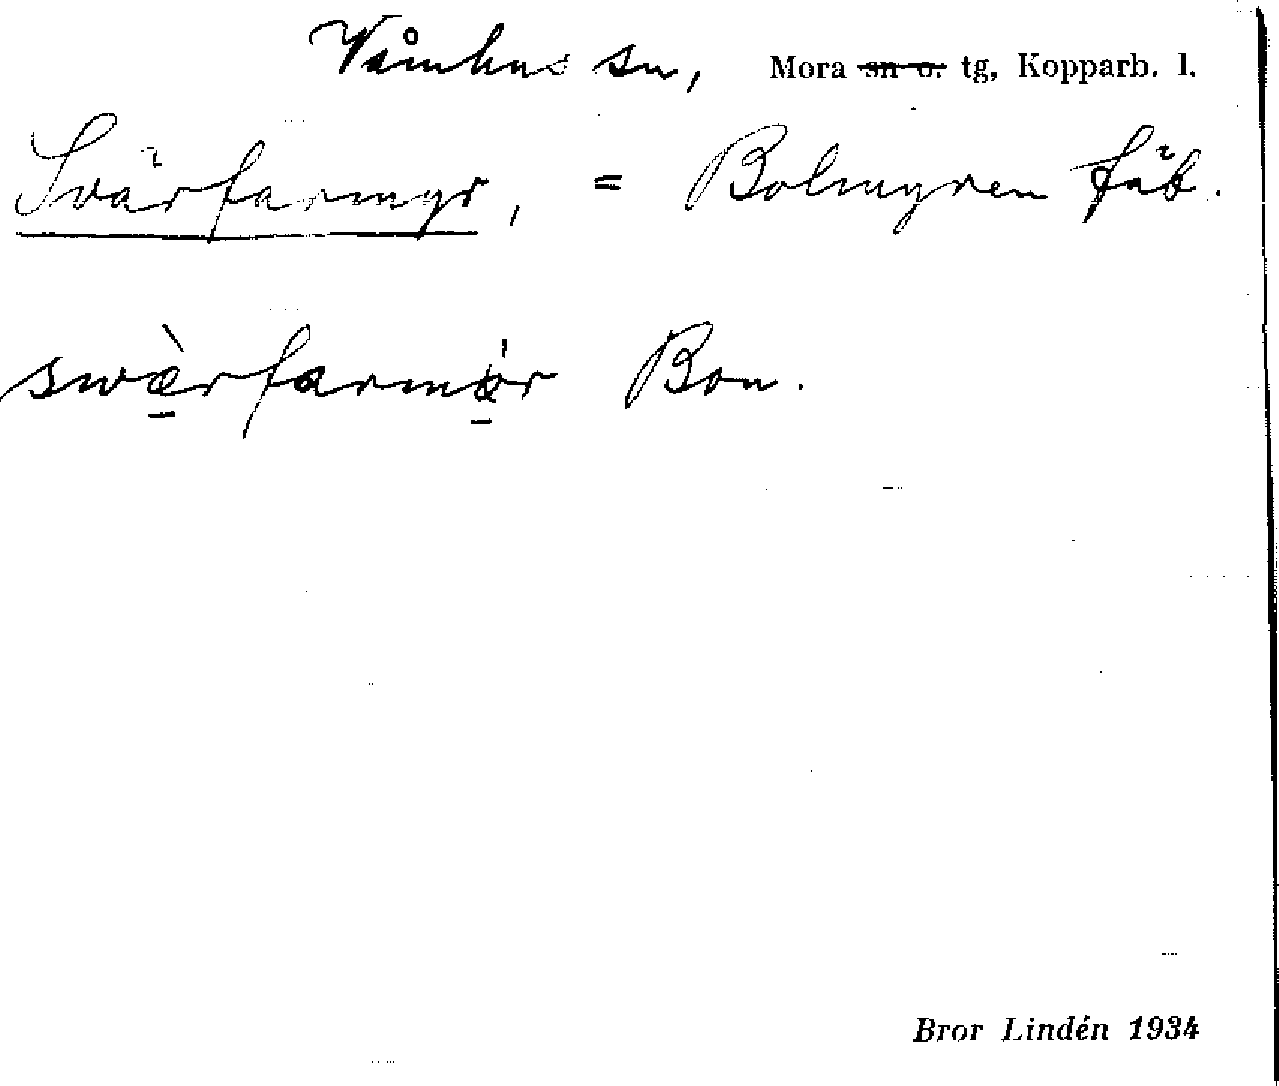 Våmhus sn, Mora sn o. tg, Kopparb. l.
Svärfarmyr, = Bolmyren fäb.
swæ̠̀rfarmǿ̠r Bon.
Bror Lindén 1934